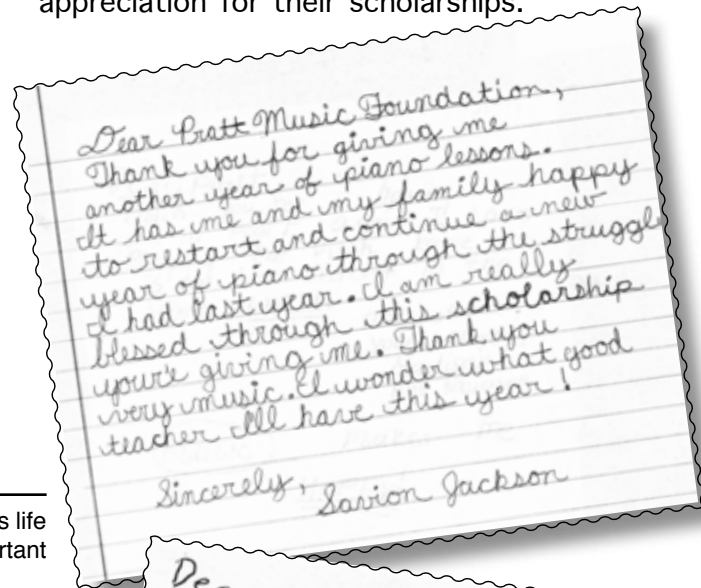 appreciation for their scholarships.
Dear Pratt Music Foundation,
Thank you for giving me
another year of piano lessons.
It has me and my family happy
to restart and continue a new
year of piano through the struggle
I had last year. I am really
blessed through this scholarship
your'e giving me. Thank you
very music. I wonder what good
teacher Ill have this year!
Sincerely, Savion Jackson
s life
rtant
De